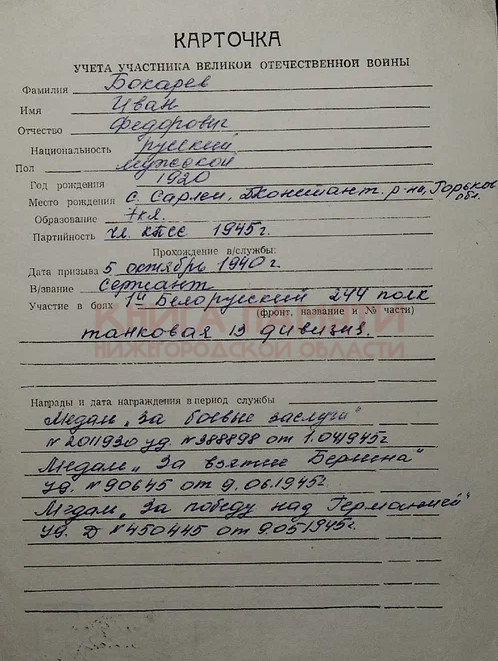 КАРТОЧКА
УЧЕТА УЧАСТНИКА ВЕЛИКОЙ ОТЕЧЕСТВЕННОЙ ВОЙНЫ
Фамилия Бокарев
Имя Иван
Отчество Федорович
Национальность русский
Пол мужской
Год рождения 1920
Место рождения с. Сарлеи, Дконстант. р-на, Горьков обл.
Образование 7 кл.
Партийность Чл. КПСС 1945г.
Прохождение в/службы:
Дата призыва 5 октябрь 1940 г.
В/звание Сержант
Участие в боях 1й Белорусский 244 полк
(фронт, название и № части)
танковая 19 дивизия.
КНИГА ПАМЯТИ
НИЖЕГОРОДСКОЙ ОБЛАСТИ
Награды и дата награждения в период службы
Медаль „За боевые заслуги"
№ 2011930 уд. № 388898 от 1.04 1945г
Медаль „За взятие Берлина"
уд. № 90645 от 9.06.1945г.
Медаль „За победу над Германией"
Уд. Д № 450445 от 9.05 1945г.